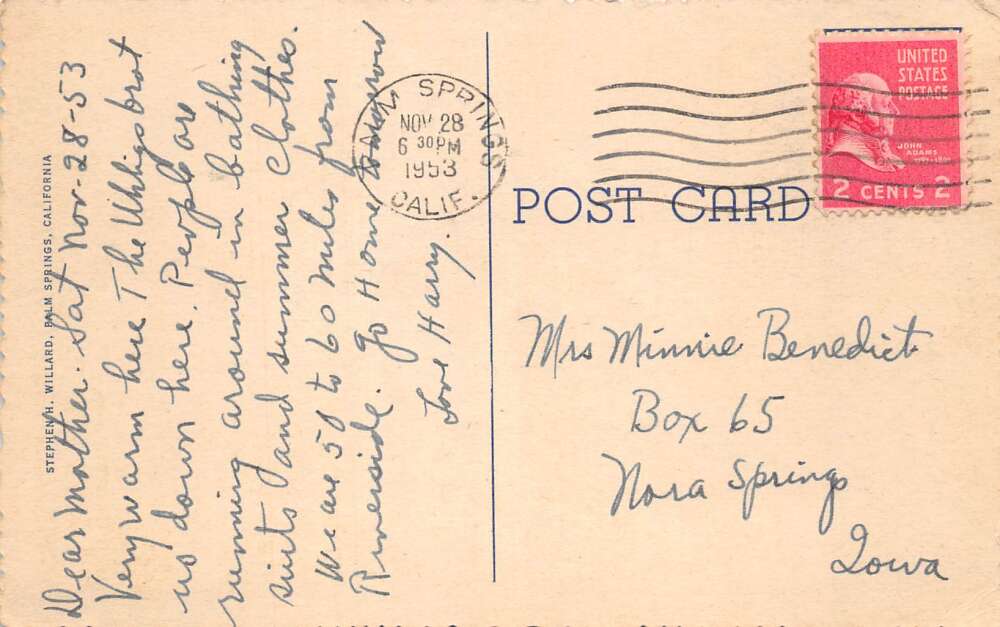 Dear Mother. Sat Nov-28-53
Very warm here The Uhligs brot
us down here. People are
running around in bathing
suits and summer clothes.
We are 50 to 60 miles from
Riverside. go Home tomorrow
Love Harry.
STEPHEN H. WILLARD, PALM SPRINGS, CALIFORNIA
PALM SPRINGS
NOV 28
6 30PM
1953
CALIF.
POST CARD
UNITED
STATES
POSTAGE
JOHN
ADAMS
2 CENTS 2
Mrs Minnie Benedict
Box 65
Nora Springs
Iowa